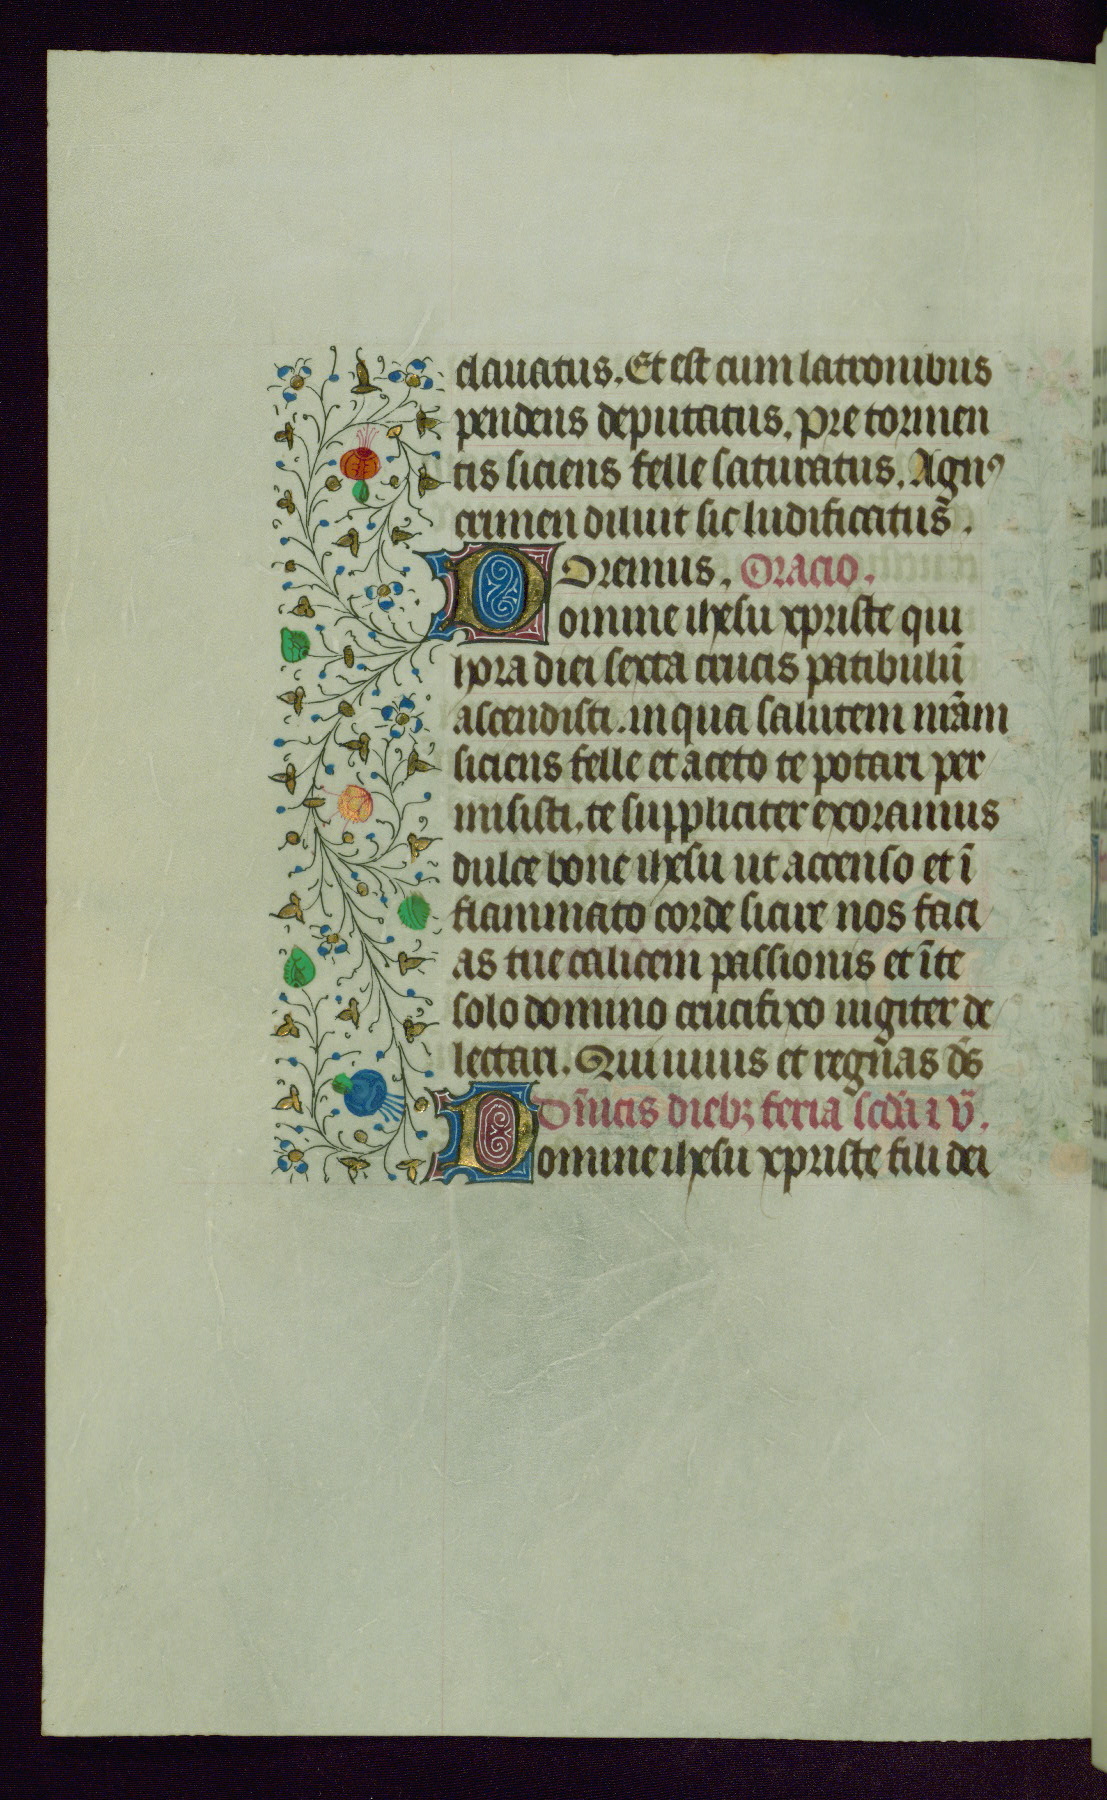 clauatus. Et est cum latronibus
pendens deputatus. pre tormen
tis siciens felle saturatus. Agnꝰ
crimen diluit sic ludificatus̄.
Oremus. Oracio.
Domine ihesu xpriste qui
hora diei sexta crucis patibulū
ascendisti. in qua salutem nr̄am
siciens felle et aceto te potari per
misisti. te suppliciter exoramus
dulce bone ihesu ut accenso et ī
flammato corde sicire nos faci
as tue calicem passionis et ī te
solo domino crucifixo iugiter de
lectari. Qui uiuis et regn̄as ds̄
Dn̄icis diebꝫ feria scd̄a ꝛ v̄.
Domine ihesu xpriste fili dei